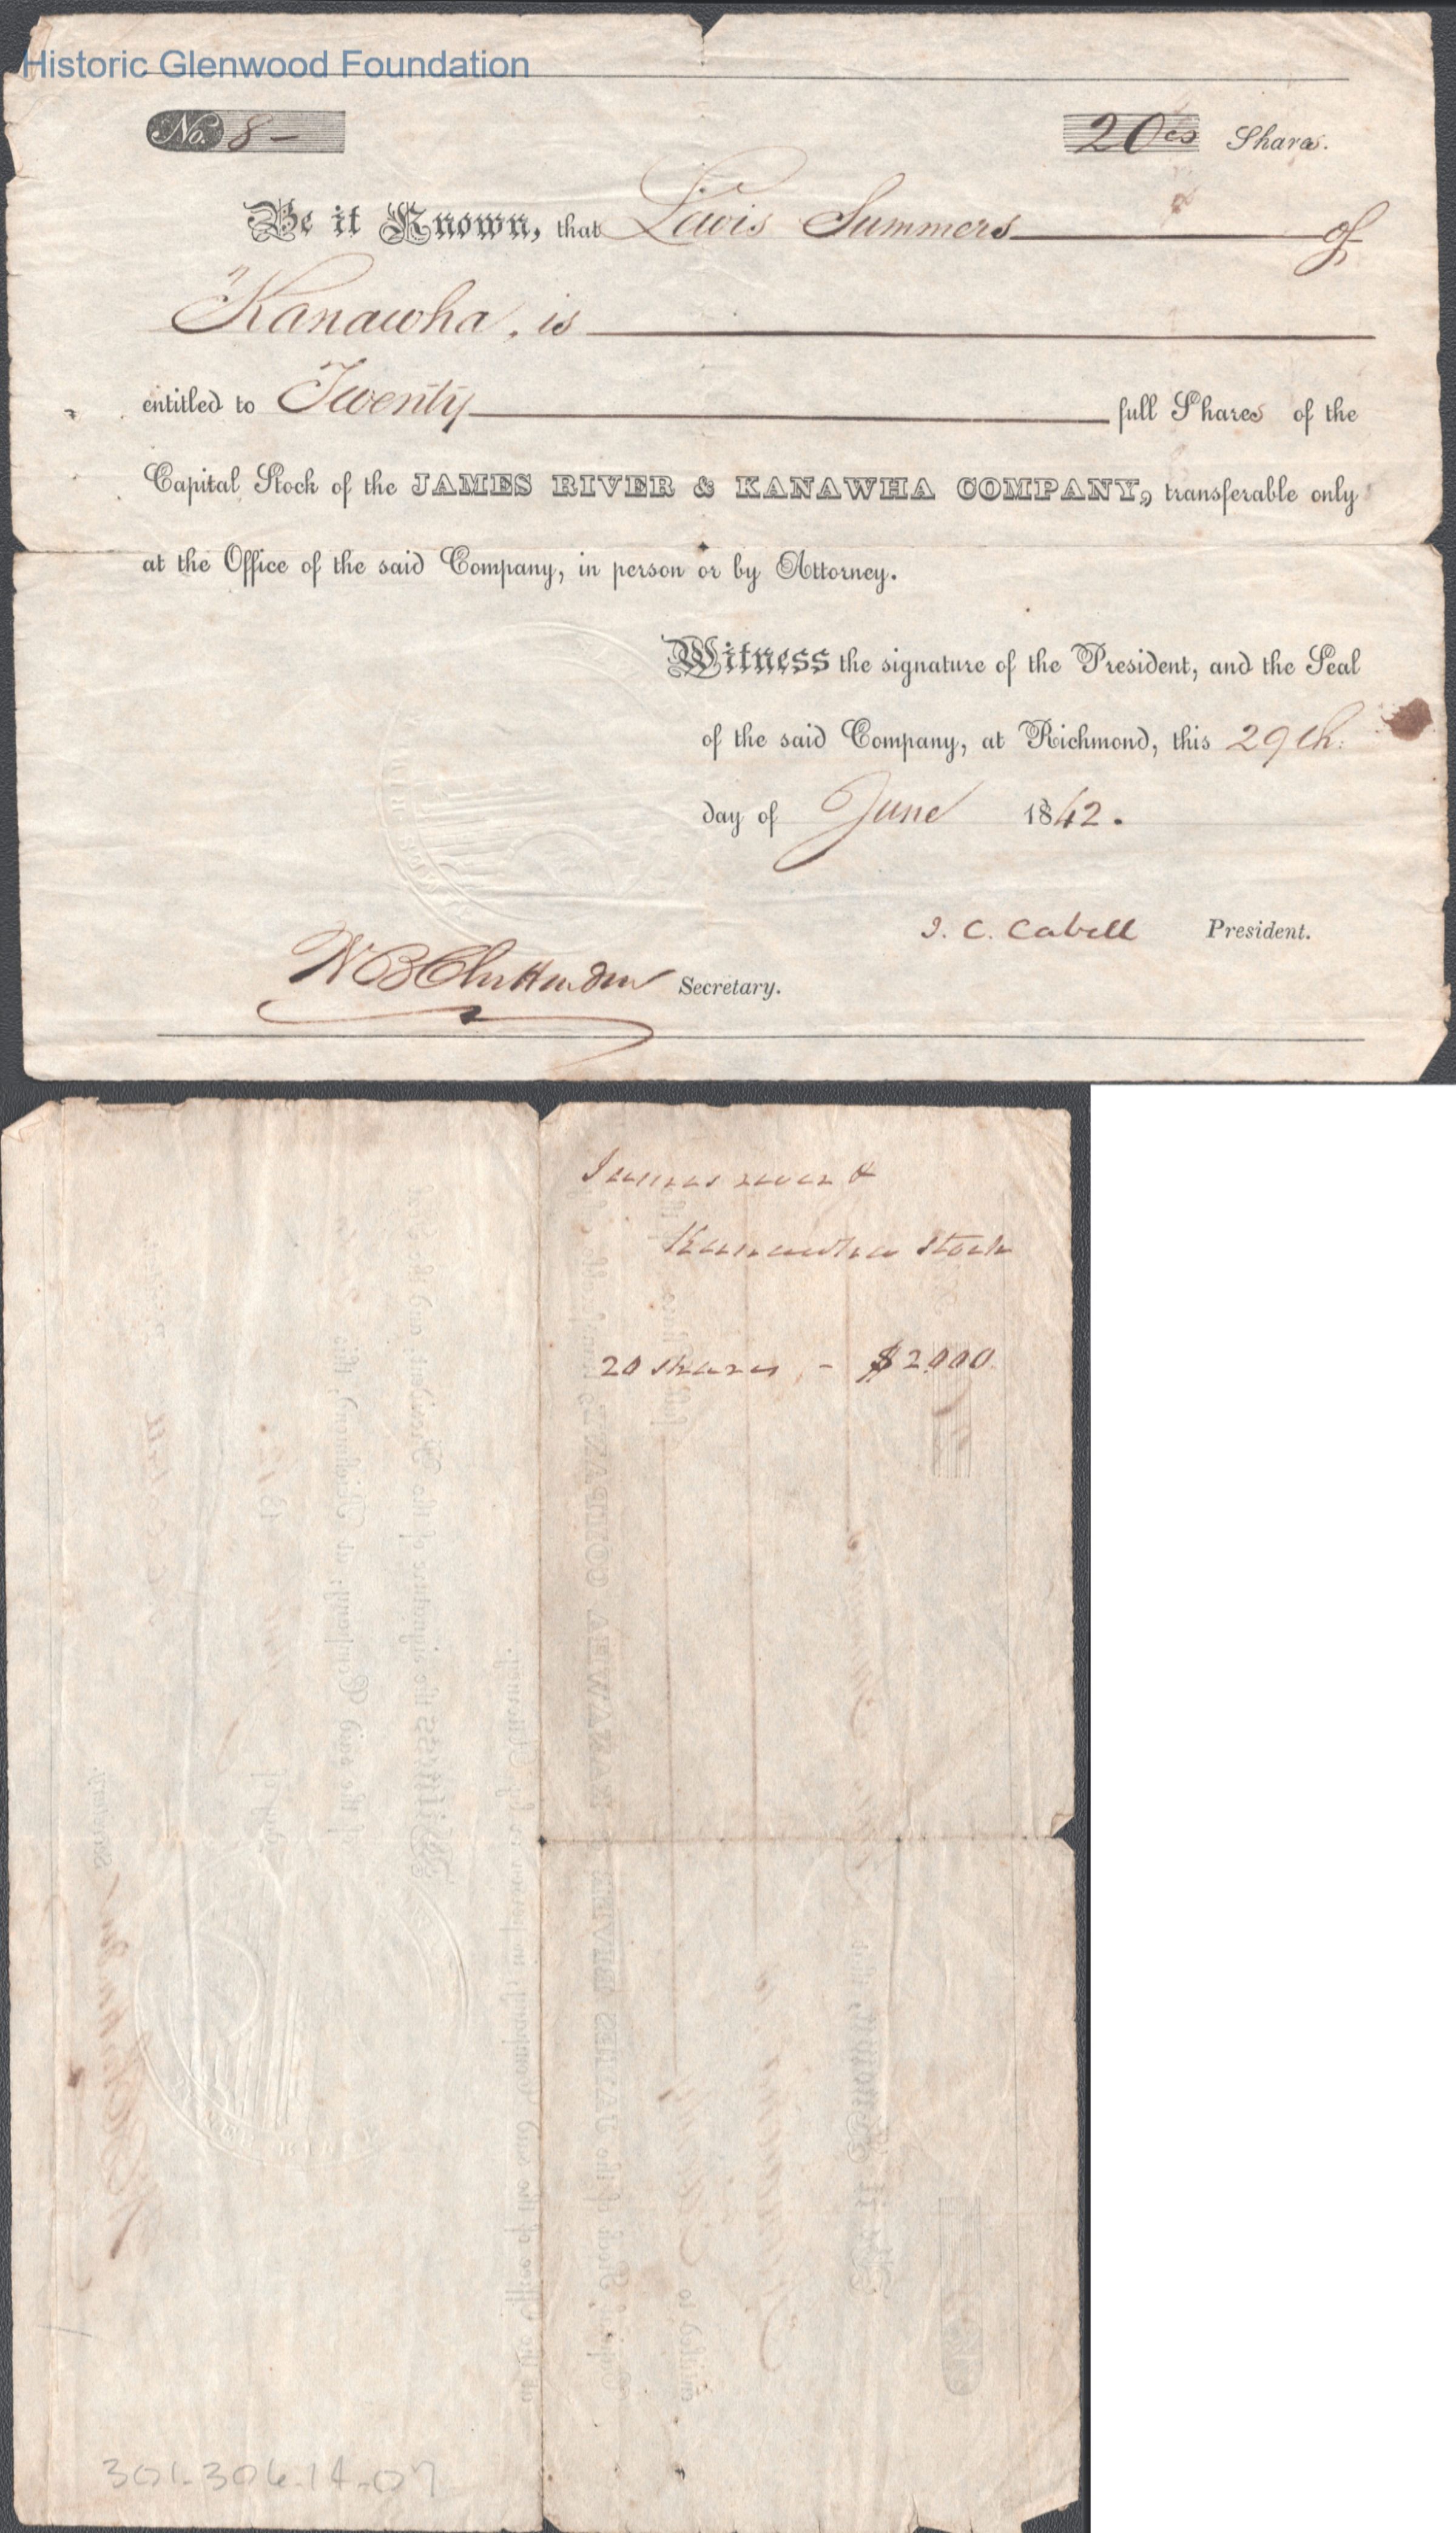 Historic Glenwood Foundation
No. 8 –
20 es Share.
Be it Known, that Lewis Summers of
Kanawha, is
entitled to Twenty full Shares of the
Capital Stock of the JAMES RIVER & KANAWHA COMPANY, transferable only
at the Office of the said Company, in person or by Attorney.
Witness the signature of the President, and the Seal
of the said Company, at Richmond, this 29th.
day of June 1842.
J. C. Cabell President.
W B Chittenden Secretary.
James river &
Kanawha Stock
20 shares – $2000.
301.306.14-07